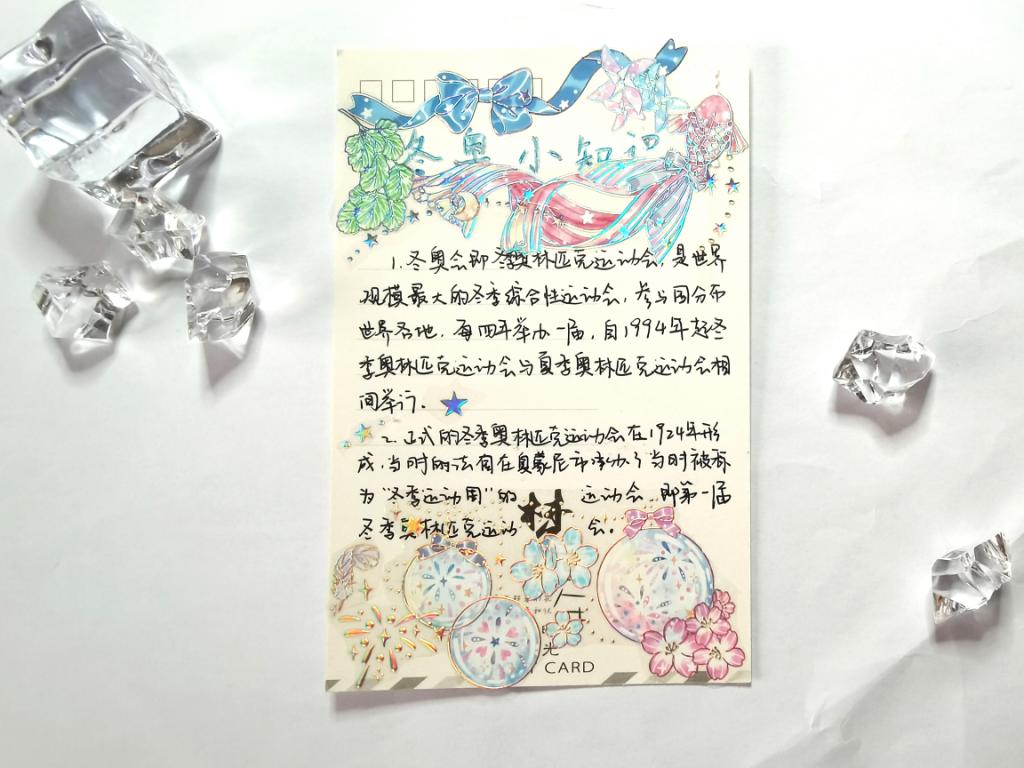 冬奥小知识
1.冬奥会即冬季奥林匹克运动会,是世界
规模最大的冬季综合性运动会,参与国分布
世界各地,每四年举办一届,自1994年起冬
季奥林匹克运动会与夏季奥林匹克运动会相
间举行.
2.正式的冬季奥林匹克运动会在1924年形
成,当时的法国在夏蒙尼市承办了当时被称
为"冬季运动周"的 运动会,即第一届
冬季奥林匹克运动 会.
村
光
CARD